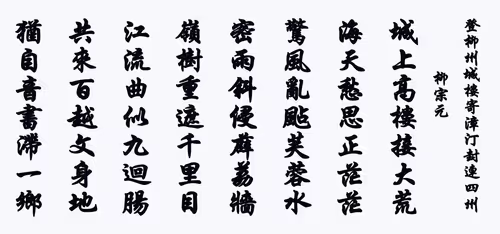 登柳州城樓寄漳汀封連四州
柳宗元
城上高樓接大荒
海天愁思正茫茫
驚風亂颭芙蓉水
密雨斜侵薜荔牆
嶺樹重遮千里目
江流曲似九迴腸
共來百越文身地
猶自音書滯一鄉